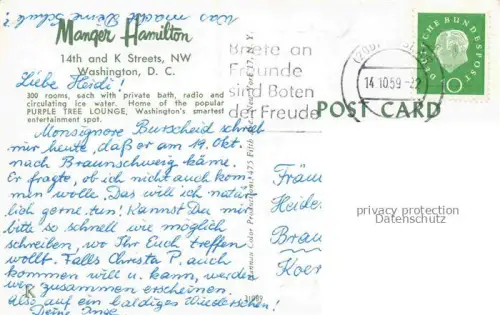 was macht Deine Schule?
Manger Hamilton
14th and K Streets, NW
Washington, D. C.
Liebe Heidi!
300 rooms, each with private bath, radio and
circulating ice water. Home of the popular
PURPLE TREE LOUNGE, Washington's smartest
entertainment spot.
Monsignore Burscheid schrieb
mir heute, daß er am 19. Okt.
nach Braunschweig käme.
Er fragte, ob ich nicht auch kom-
men wolle. Das will ich natür-
lich gerne tun! Kannst Du mir
bitte so schnell wie möglich
schreiben, wo Ihr Euch treffen
wollt. Falls Christa P. auch
kommen will u. kann, werden
wir zusammen erscheinen.
Also auf ein baldiges Wiedersehen!
Deine Inge
K
Briefe an
Freunde
sind Boten
der Freude
14.10.59
DEUTSCHE BUNDESPOST
10
POST CARD
475 Fifth
N. Y.
Fräu
Heide
Brau
Koer
privacy protection
Datenschutz